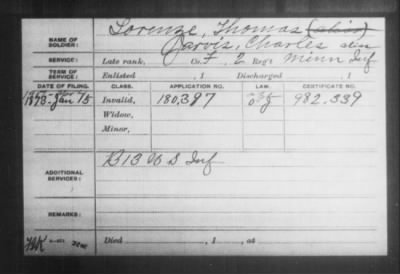 NAME OF SOLDIER: Lorenze, Thomas (alias)
Jarvis, Charles alias
SERVICE: Late rank, Co. F, 2 Reg't Minn Inf
TERM OF SERVICE: Enlisted , 1 Discharged , 1
DATE OF FILING. CLASS. APPLICATION NO. LAW. CERTIFICATE NO.
1873-Jan 15 Invalid, 180.397 982.339
Widow,
Minor,
ADDITIONAL SERVICES: B 13 U S Inf
REMARKS:
Died , 1 , at